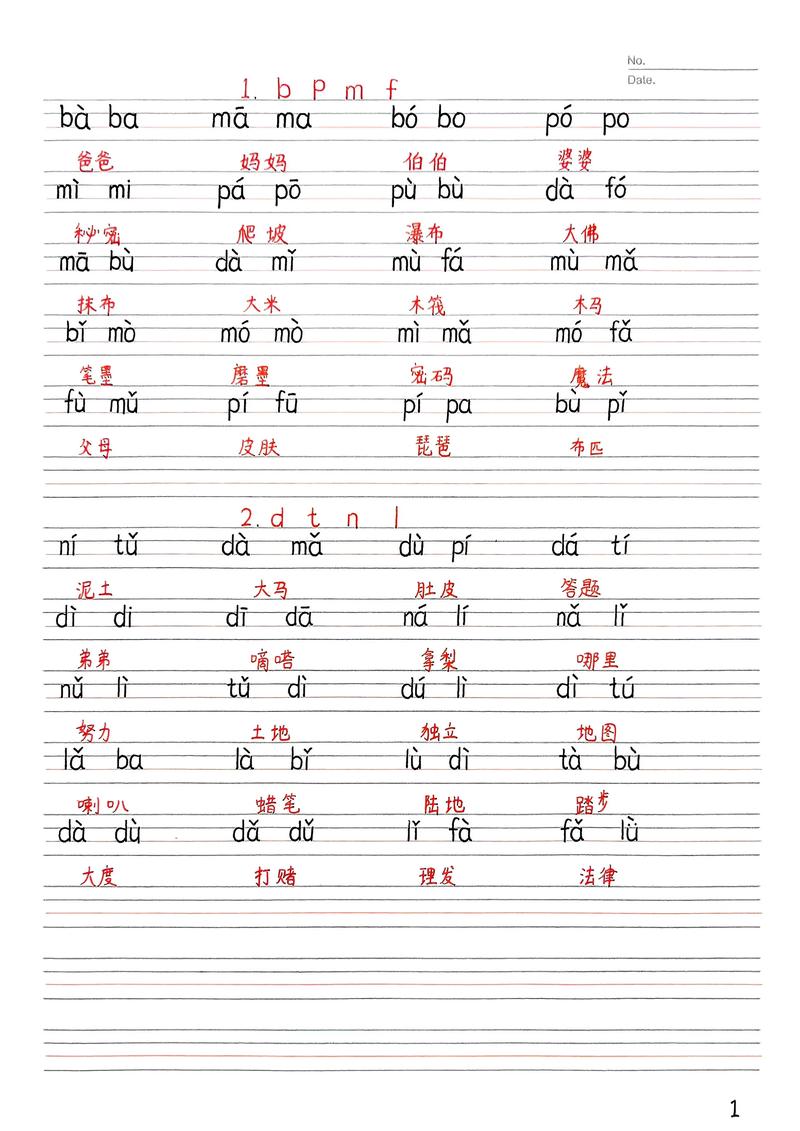 No.
Date.
1. b p m f
bà ba mā ma bó bo pó po
爸爸 妈妈 伯伯 婆婆
mì mi pá pō pù bù dà fó
秘密 爬坡 瀑布 大佛
mā bù dà mǐ mù fá mù mǎ
抹布 大米 木筏 木马
bǐ mò mó mò mì mǎ mó fǎ
笔墨 磨墨 密码 魔法
fù mǔ pí fū pí pa bù pǐ
父母 皮肤 琵琶 布匹
2. d t n l
ní tǔ dà mǎ dù pí dá tí
泥土 大马 肚皮 答题
dì di dī dā ná lí nǎ lǐ
弟弟 嘀嗒 拿梨 哪里
nǔ lì tǔ dì dú lì dì tú
努力 土地 独立 地图
lǎ ba là bǐ lù dì tà bù
喇叭 蜡笔 陆地 踏步
dà dù dǎ dǔ lǐ fà fǎ lǜ
大度 打赌 理发 法律
1